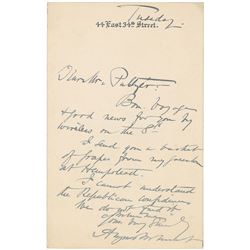 Tuesday.
44 East 34th Street.
Dear Mr Pulitzer.
Bon voyage
& good news for you by
wireless on the
I send you a basket
of grapes from my
at Hempstead.
I cannot understand
the Republican confidence
We do not